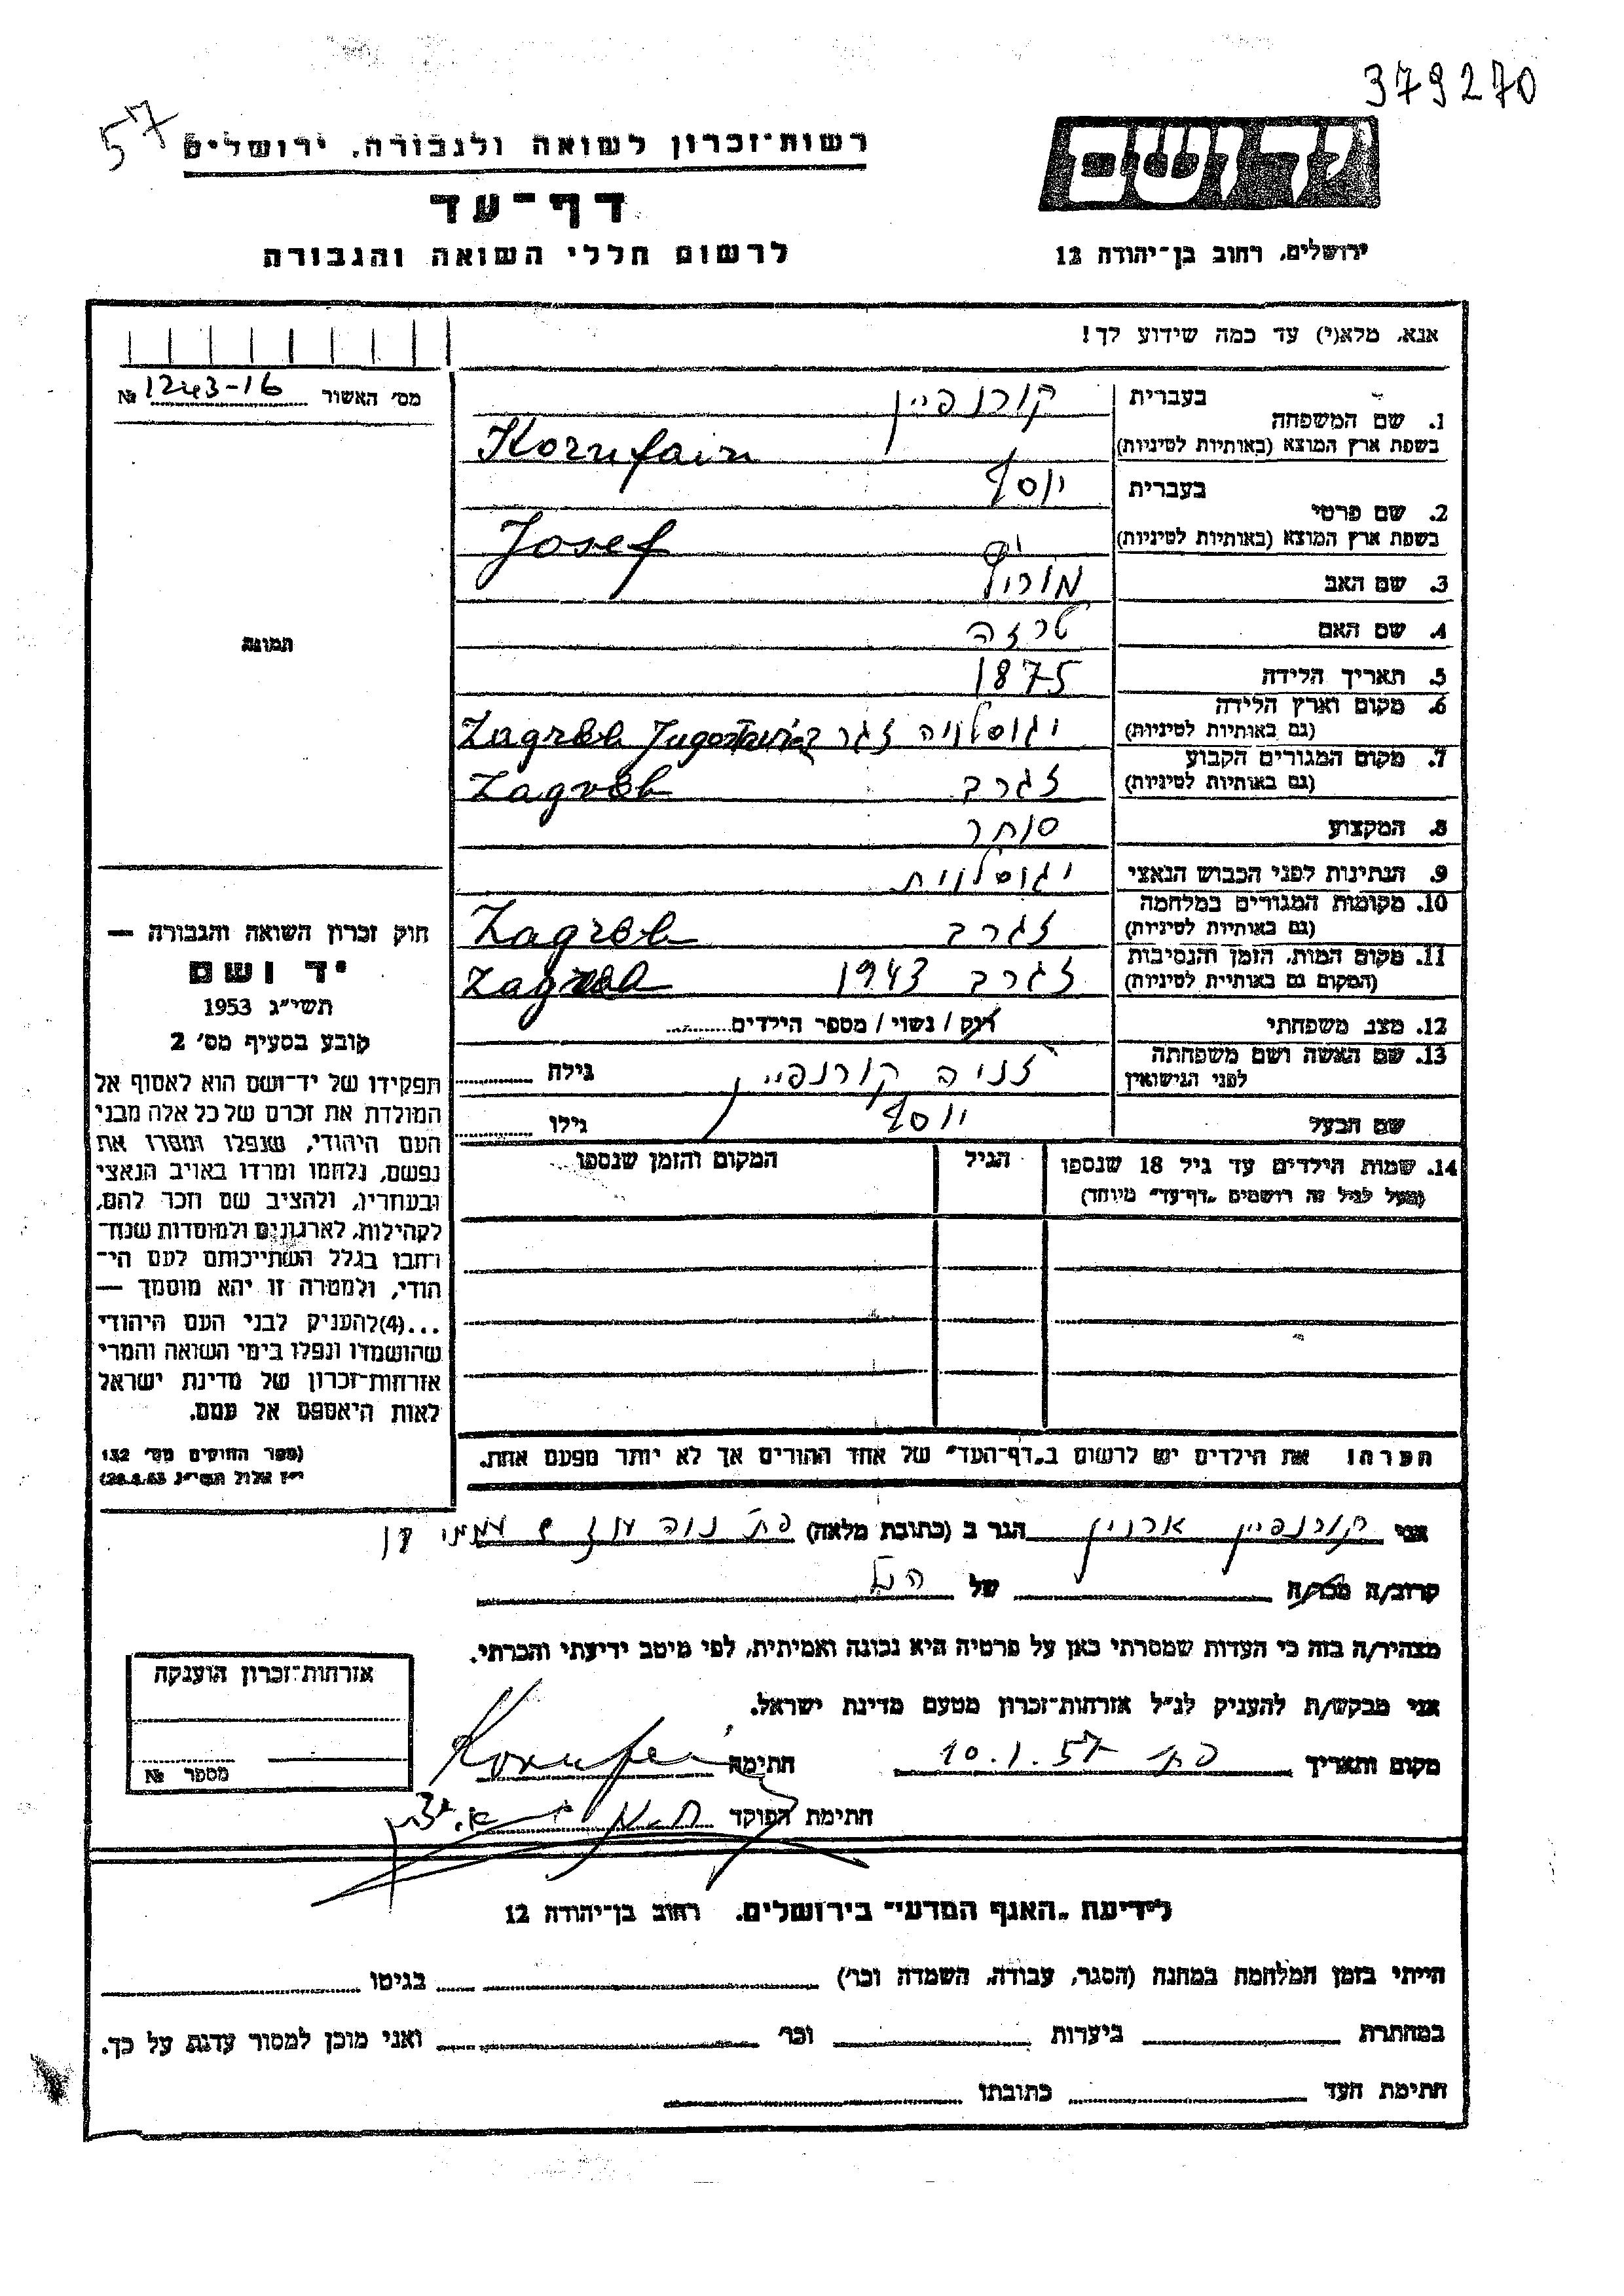 379270
57
רשות־זכרון לשואה ולגבורה, ירושלים
דף־עד
לרשום חללי השואה והגבורה
יד ושם
ירושלים, רחוב בן־יהודה 12
אנא, מלא(י) עד כמה שידוע לך!
מס׳ האשור 1243-16 №
1. שם המשפחה
בעברית קורנפיין
בשפת ארץ המוצא (באותיות לטיניות) Kornfain
2. שם פרטי
בעברית יוסף
בשפת ארץ המוצא (באותיות לטיניות) Josef
3. שם האב מוריץ
4. שם האם טרזה
5. תאריך הלידה 1875
6. מקום וארץ הלידה
(גם באותיות לטיניות) יגוסלויה זגרב Zagreb Jugoslavia
7. מקום המגורים הקבוע
(גם באותיות לטיניות) זגרב Zagreb
8. המקצוע סוחר
9. הנתינות לפני הכבוש הנאצי יגוסלוית
10. מקומות המגורים במלחמה
(גם באותיות לטיניות) זגרב Zagreb
11. מקום המות, הזמן והנסיבות
(המקום גם באותיות לטיניות) זגרב 1943 Zagreb
12. מצב משפחתי רוק / נשוי / מספר הילדים
13. שם האשה ושם משפחתה
לפני הנישואין זניה קורנפיין גילה
שם הבעל יוסף גילו
14. שמות הילדים עד גיל 18 שנספו הגיל המקום והזמן שנספו
(מעל לגיל זה רושמים „דף־עד״ מיוחד)
תמונת
חוק זכרון השואה והגבורה —
יד ושם
תשי״ג 1953
קובע בסעיף מס׳ 2
תפקידו של יד־ושם הוא לאסוף אל
המולדת את זכרם של כל אלה מבני
העם היהודי, שנפלו ומסרו את
נפשם, נלחמו ומרדו באויב הנאצי
ובעוזריו, ולהציב שם וזכר להם,
לקהילות, לארגונים ולמוסדות שנח־
רחבו בגלל השתייכותם לעם הי־
הודי, ולמטרה זו יהא מוסמך —
...(4)להעניק לבני העם היהודי
שהושמדו ונפלו בימי השואה והמרי
אזרחות־זכרון של מדינת ישראל
לאות היאספם אל עמם.
(ספר החוקים מס׳ 132
י״ז אלול תשי״ג 28.8.53)
הערה: את הילדים יש לרשום ב„דף־העד״ של אחד ההורים אך לא יותר מפעם אחת.
אני קורנפיין ארוין הגר ב (כתובת מלאה) פת נוה עוז
קרוב/ה מכר/ה של הנל
מצהיר/ה בזה כי העדות שמסרתי כאן על פרטיה היא נכונה ואמיתית, לפי מיטב ידיעתי והכרתי.
אני מבקש/ת להעניק לנ״ל אזרחות־זכרון מטעם מדינת ישראל.
מקום ותאריך פת 10.1.57 חתימה Kornfein
חתימת הפוקד
אזרחות־זכרון הוענקה
מספר №
לידיעת „האגף המדעי״ בירושלים, רחוב בן־יהודה 12
הייתי בזמן המלחמה במחנה (הסגר, עבודה, השמדה וכו׳) בגיטו
במחתרת ביערות וכו׳ ואני מוכן למסור עדות על כך.
חתימת העד כתובתו